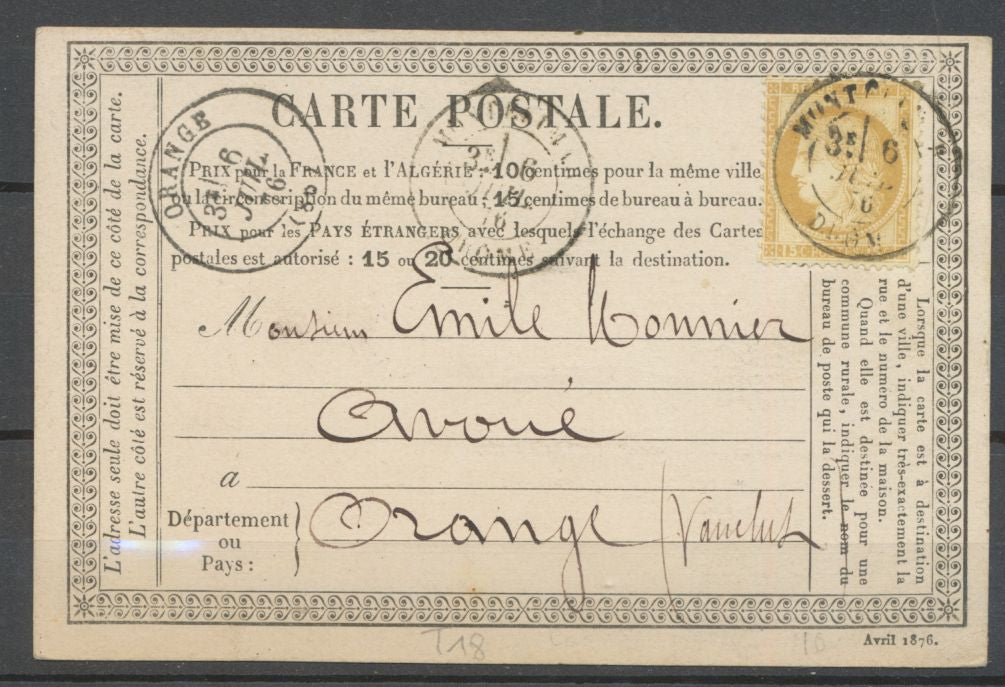 CARTE POSTALE.
PRIX pour la FRANCE et l'ALGÉRIE : 10 centimes pour la même ville
ou la circonscription du même bureau ; 15 centimes de bureau à bureau.
PRIX pour les PAYS ÉTRANGERS avec lesquels l'échange des Cartes
postales est autorisé : 15 ou 20 centimes suivant la destination.
Monsieur Emile Monnier
Avoué
a
Département
ou
Pays :
Orange (Vaucluse
L'adresse seule doit être mise de ce côté de la carte.
L'autre côté est réservé à la correspondance.
Lorsque la carte est à destination
d'une ville, indiquer très-exactement la
rue et le numéro de la maison.
Quand elle est destinée pour une
commune rurale, indiquer le nom du
bureau de poste qui la dessert.
ORANGE
3E
6
JUIL
76
(86)
3E
6
76
3E
6
76
15 C
Avril 1876.
T18